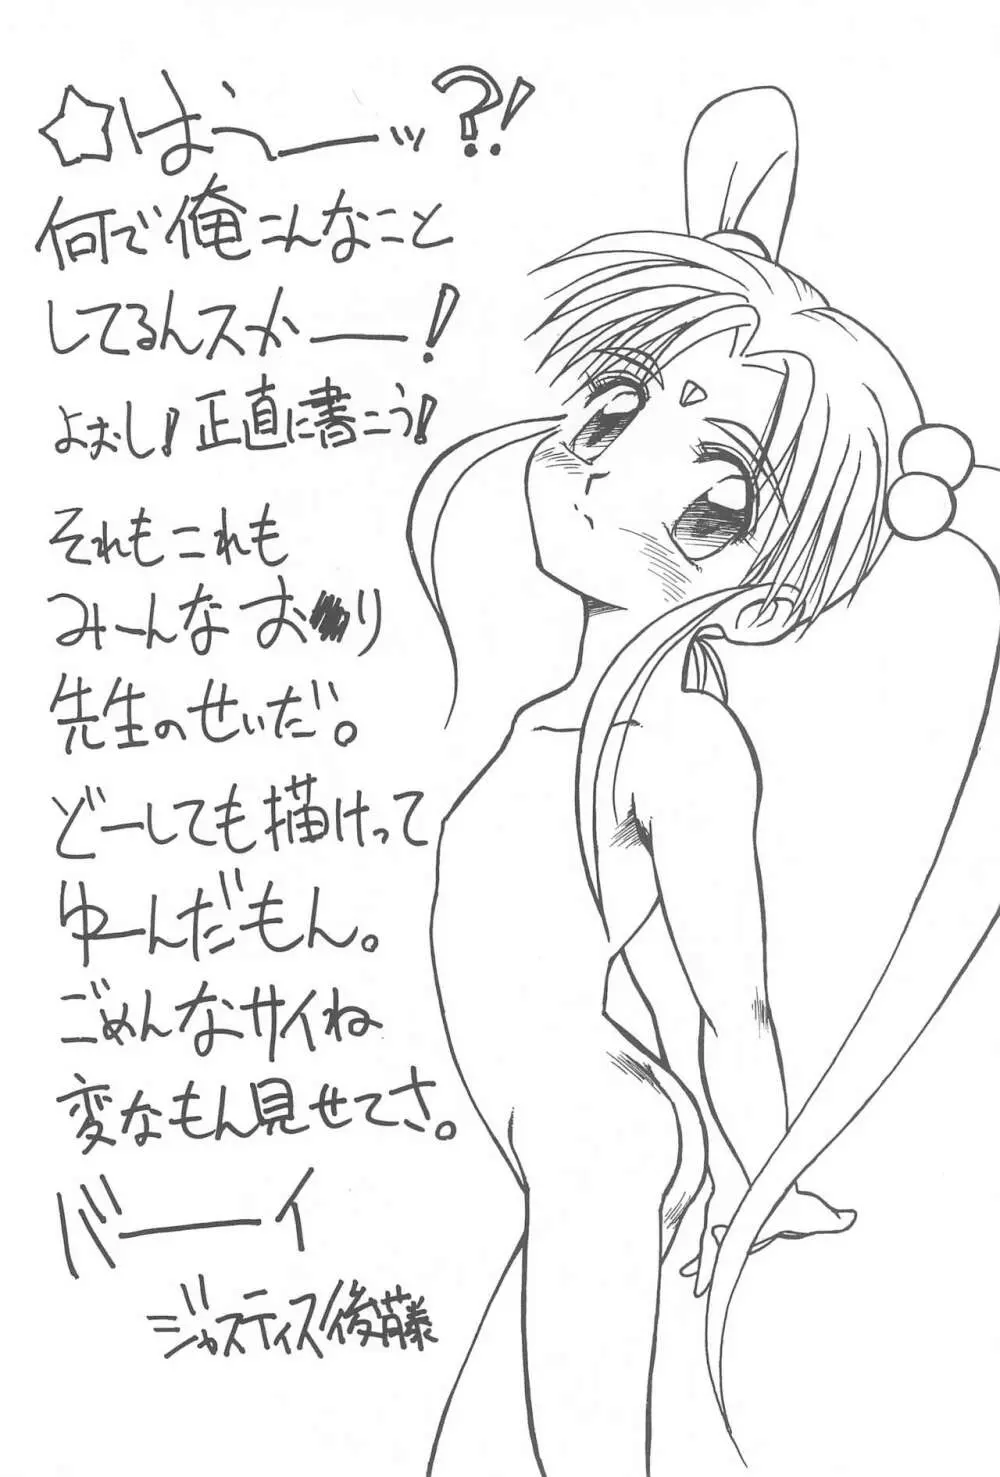 ☆はうーッ?!
何で俺こんなこと
してるんスかー!
よおし!正直に書こう!
それもこれも
みーんなお り
先生のせいだ。
どーしても描けって
ゆーんだもん。
ごめんなサイね
変なもん見せてさ。
バーイ
ジャスティス後藤